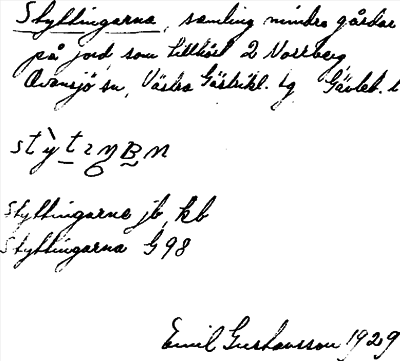 Styttingarna, samling mindre gårdar
på jord som tillhört 2 Norrberg
Ovansjö sn, Västra Gästrikl. tg Gävleb. l
Styttingarne jb, kb
Styttingarna G 98
Emil Gustavsson 1929